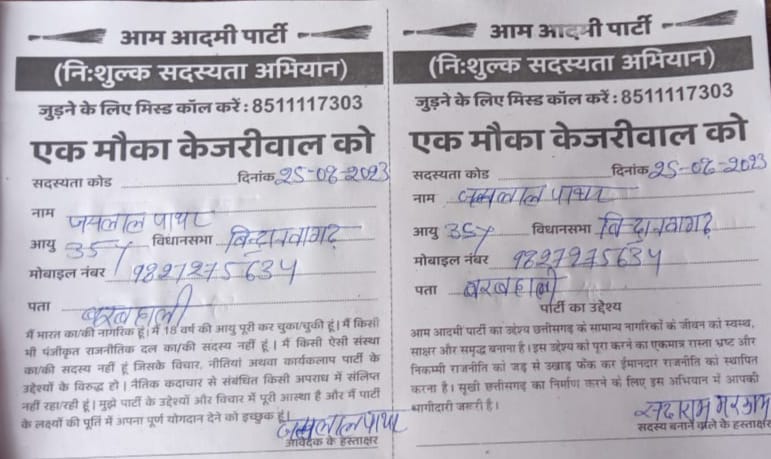 आम आदमी पार्टी
(नि:शुल्क सदस्यता अभियान)
जुड़ने के लिए मिस्ड कॉल करें : 8511117303
एक मौका केजरीवाल को
सदस्यता कोड दिनांक 25-08-2023
नाम जयलाल पाथर
आयु 35 विधानसभा बिन्द्रानवागढ़
मोबाइल नंबर 9827275634
पता बरबहाली
मैं भारत का/की नागरिक हूं। मैं 18 वर्ष की आयु पूरी कर चुका/चुकी हूं। मैं किसी
भी पंजीकृत राजनीतिक दल का/की सदस्य नहीं हूं। मैं किसी ऐसी संस्था
का/की सदस्य नहीं हूं जिसके विचार, नीतियां अथवा कार्यकलाप पार्टी के
उद्देश्यों के विरुद्ध हो। नैतिक कदाचार से संबंधित किसी अपराध में संलिप्त
नहीं रहा/रही हूं। मुझे पार्टी के उद्देश्यों और विचार में पूरी आस्था है और मैं पार्टी
के लक्ष्यों की पूर्ति में अपना पूर्ण योगदान देने को इच्छुक हूं।
जयलाल पाथर
आवेदक के हस्ताक्षर
आम आदमी पार्टी
(नि:शुल्क सदस्यता अभियान)
जुड़ने के लिए मिस्ड कॉल करें : 8511117303
एक मौका केजरीवाल को
सदस्यता कोड दिनांक 25-08-2023
नाम जयलाल पाथर
आयु 35 विधानसभा बिन्द्रानवागढ़
मोबाइल नंबर 9827275634
पता बरबहाली
पार्टी का उद्देश्य
आम आदमी पार्टी का उद्देश्य छत्तीसगढ़ के सामान्य नागरिकों के जीवन को स्वस्थ,
साक्षर और समृद्ध बनाना है। इस उद्देश्य को पूरा करने का एकमात्र रास्ता भ्रष्ट और
निकम्मी राजनीति को जड़ से उखाड़ फेंक कर ईमानदार राजनीति को स्थापित
करना है। सुखी छत्तीसगढ़ का निर्माण करने के लिए इस अभियान में आपकी
भागीदारी जरूरी है।
सदाराम मरकाम
सदस्य बनाने वाले के हस्ताक्षर